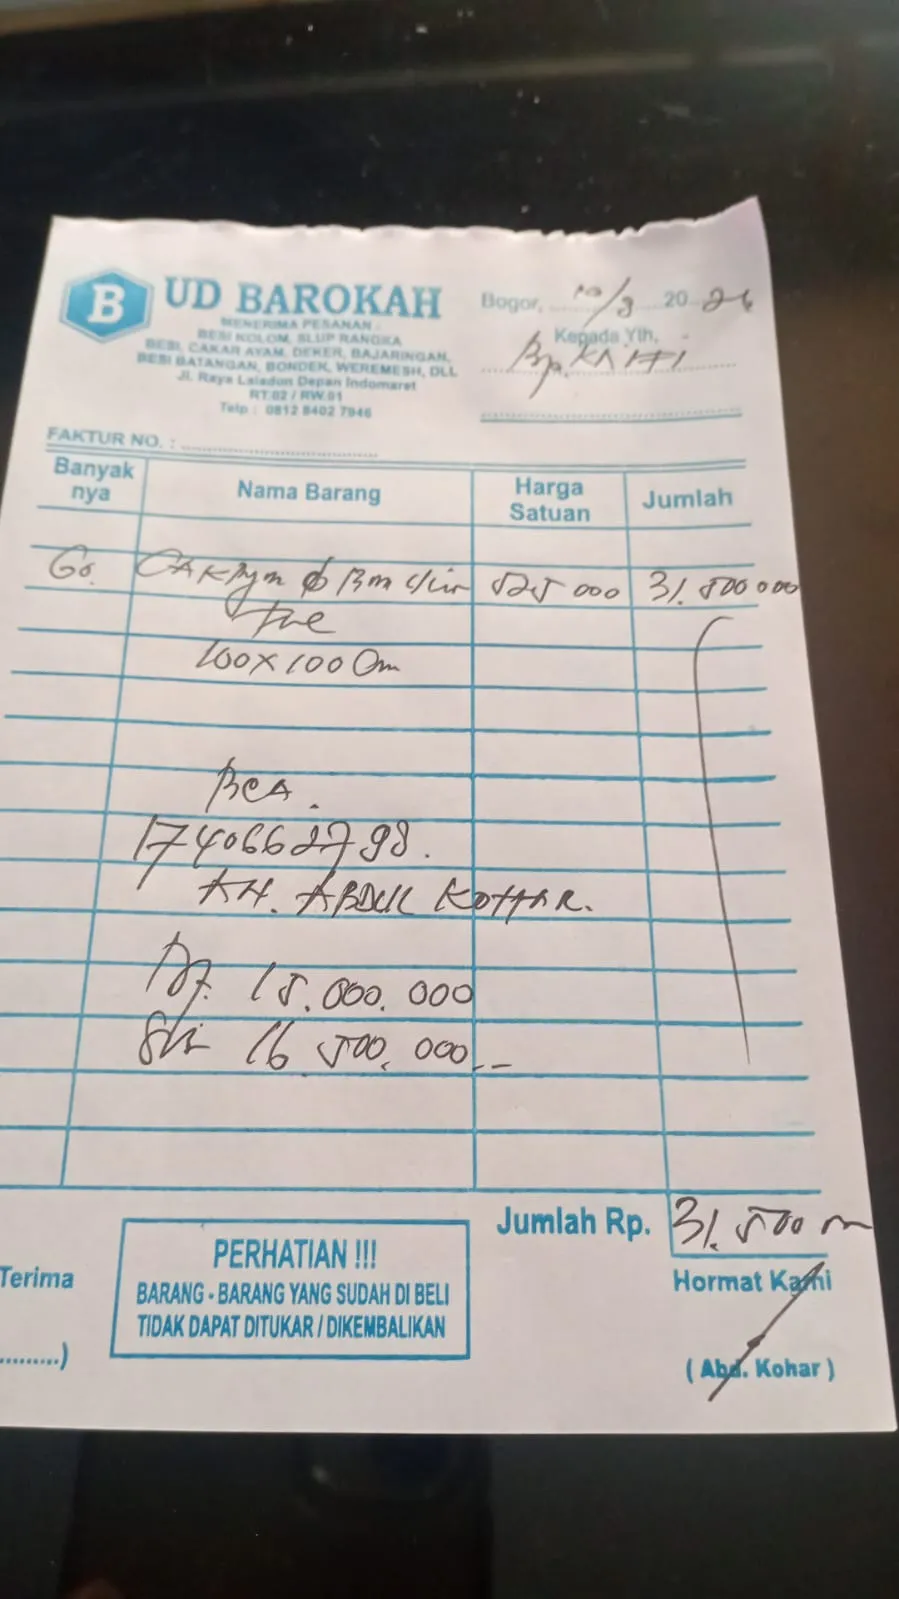 B UD BAROKAH
MENERIMA PESANAN :
BESI KOLOM, SLUP RANGKA
BESI, CAKAR AYAM, DEKER, BAJARINGAN,
BESI BATANGAN, BONDEK, WEREMESH, DLL
Jl. Raya Laladon Depan Indomaret
RT.02 / RW.01
Telp : 0812 8402 7946
Bogor, 10/3 20 26
Kepada Yth,
Bp.
FAKTUR NO. :
Banyak nya Nama Barang Harga Satuan Jumlah
60. CAKAym 525 000 31.500 000
100X100 Cm
BCA.
1740662798.
AH. ABDUL KOHAR.
Dp. 15.000.000
16.500.000,--
Jumlah Rp. 31.500
Terima
PERHATIAN !!!
BARANG - BARANG YANG SUDAH DI BELI
TIDAK DAPAT DITUKAR / DIKEMBALIKAN
Hormat Kami
( Abd. Kohar )